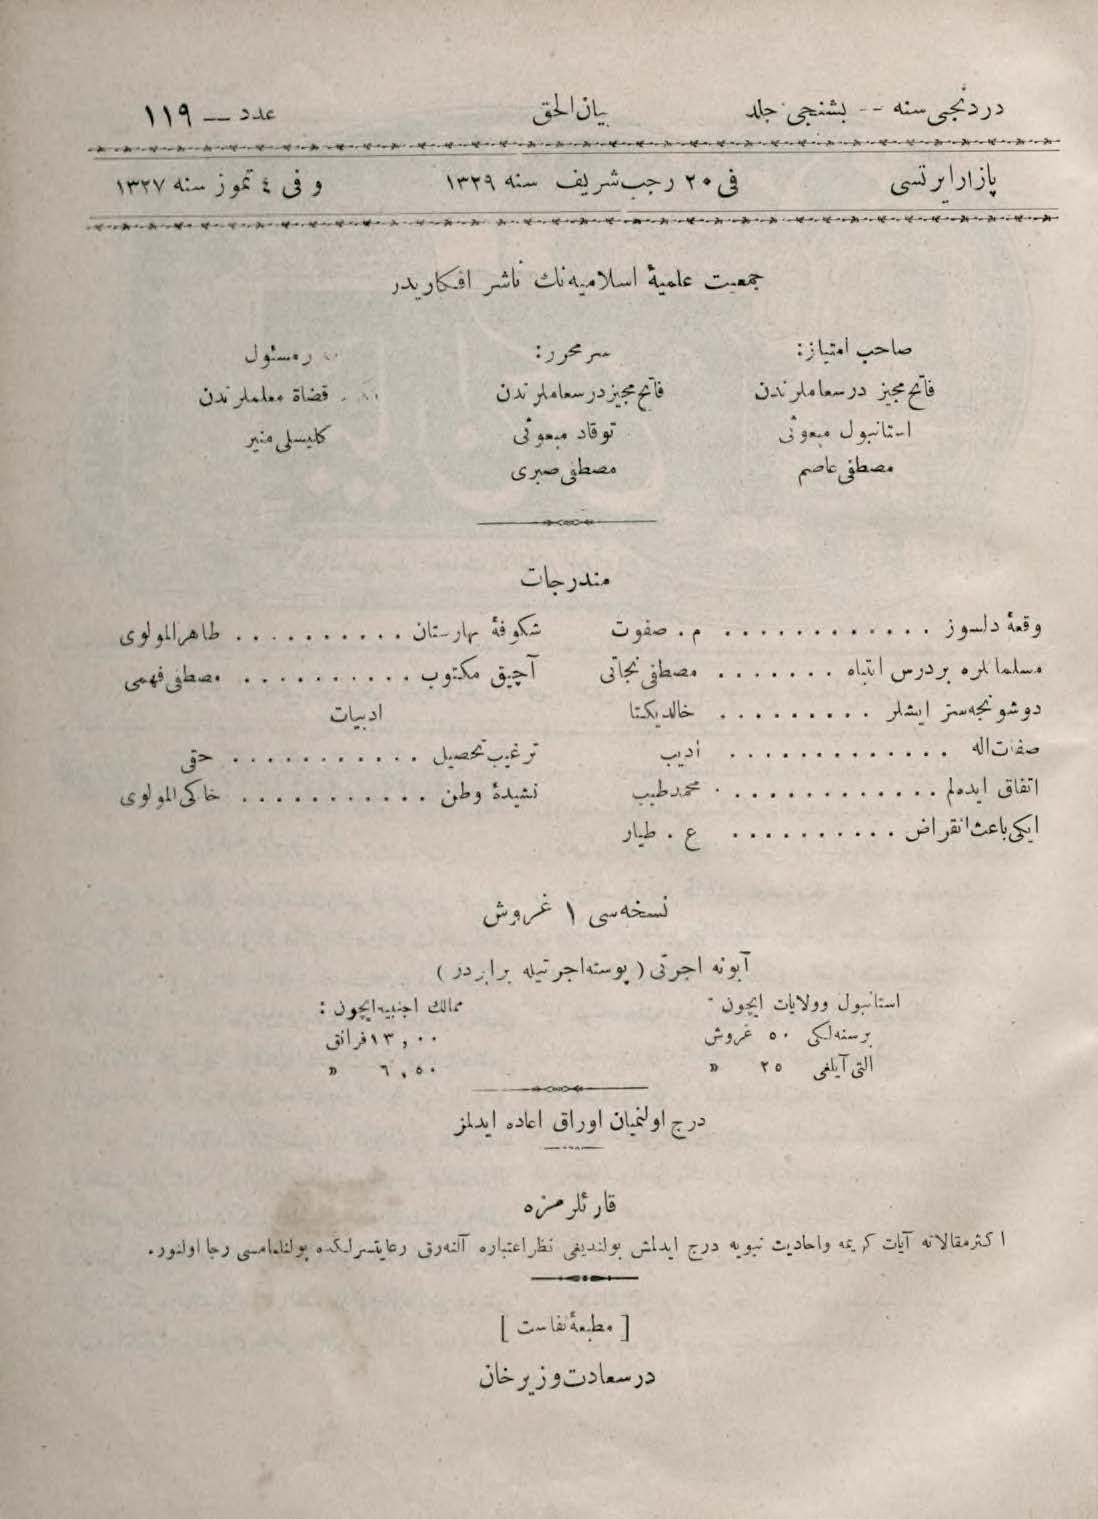 دردنجی سنه -- بشنجی جلد بیان الحق عدد — ١١٩
پازار ایرتسی فی ٢٠ رجب شریف سنه ١٣٢٩ و فی ٤ تموز سنه ١٣٢٧
جمعیت علمیۀ اسلامیه نك ناشر افکاریدر
صاحب امتیاز:
فاتح مجیز درسعاملرندن
استانبول مبعوثی
مصطفی عاصم
سر محرر:
فاتح مجیز درسعاملرندن
توقاد مبعوثی
مصطفی صبری
مسئول
قضاة معلملرندن
کلیسلی منیر
مندرجات
وقعۀ دلسوز . . . . . . . . . . . . م . صفوت
مسلمانلره بر درس انتباه . . . . . . . مصطفی نجاتی
دوشونجه سز ایشلر . . . . . . . . . خالد یکتا
صفات اله . . . . . . . . . . . . . ادیب
اتفاق ایده لم . . . . . . . . . . . . محمد طیب
ایکی باعث انقراض . . . . . . . . . . ع . طیار
شکوفۀ بهارستان . . . . . . . . . . طاهر المولوی
آچیق مکتوب . . . . . . . . . . مصطفی فهمی
ادبیات
ترغیب تحصیل . . . . . . . . . . . حقی
نشیدۀ وطن . . . . . . . . . . . خاکی المولوی
نسخه سی ١ غروش
آبونه اجرتی ( پوسته اجرتیله برابردر )
استانبول و ولایات ایچون
بر سنه لکی ٥٠ غروش
التی آیلغی ٢٥ »
ممالك اجنبیه ایچون :
١٣,٠٠ فرانق
٦,٥٠ »
درج اولنمیان اوراق اعاده ایدلمز
قارئلرمزه
اکثر مقالاته آیات کریمه و احادیث نبویه درج ایدلمش بولندیغی نظر اعتباره آلنه رق رعایتسزلکده بولنلمامسی رجا اولنور.
[ مطبعۀ نفاست ]
درسعادت وزیر خان